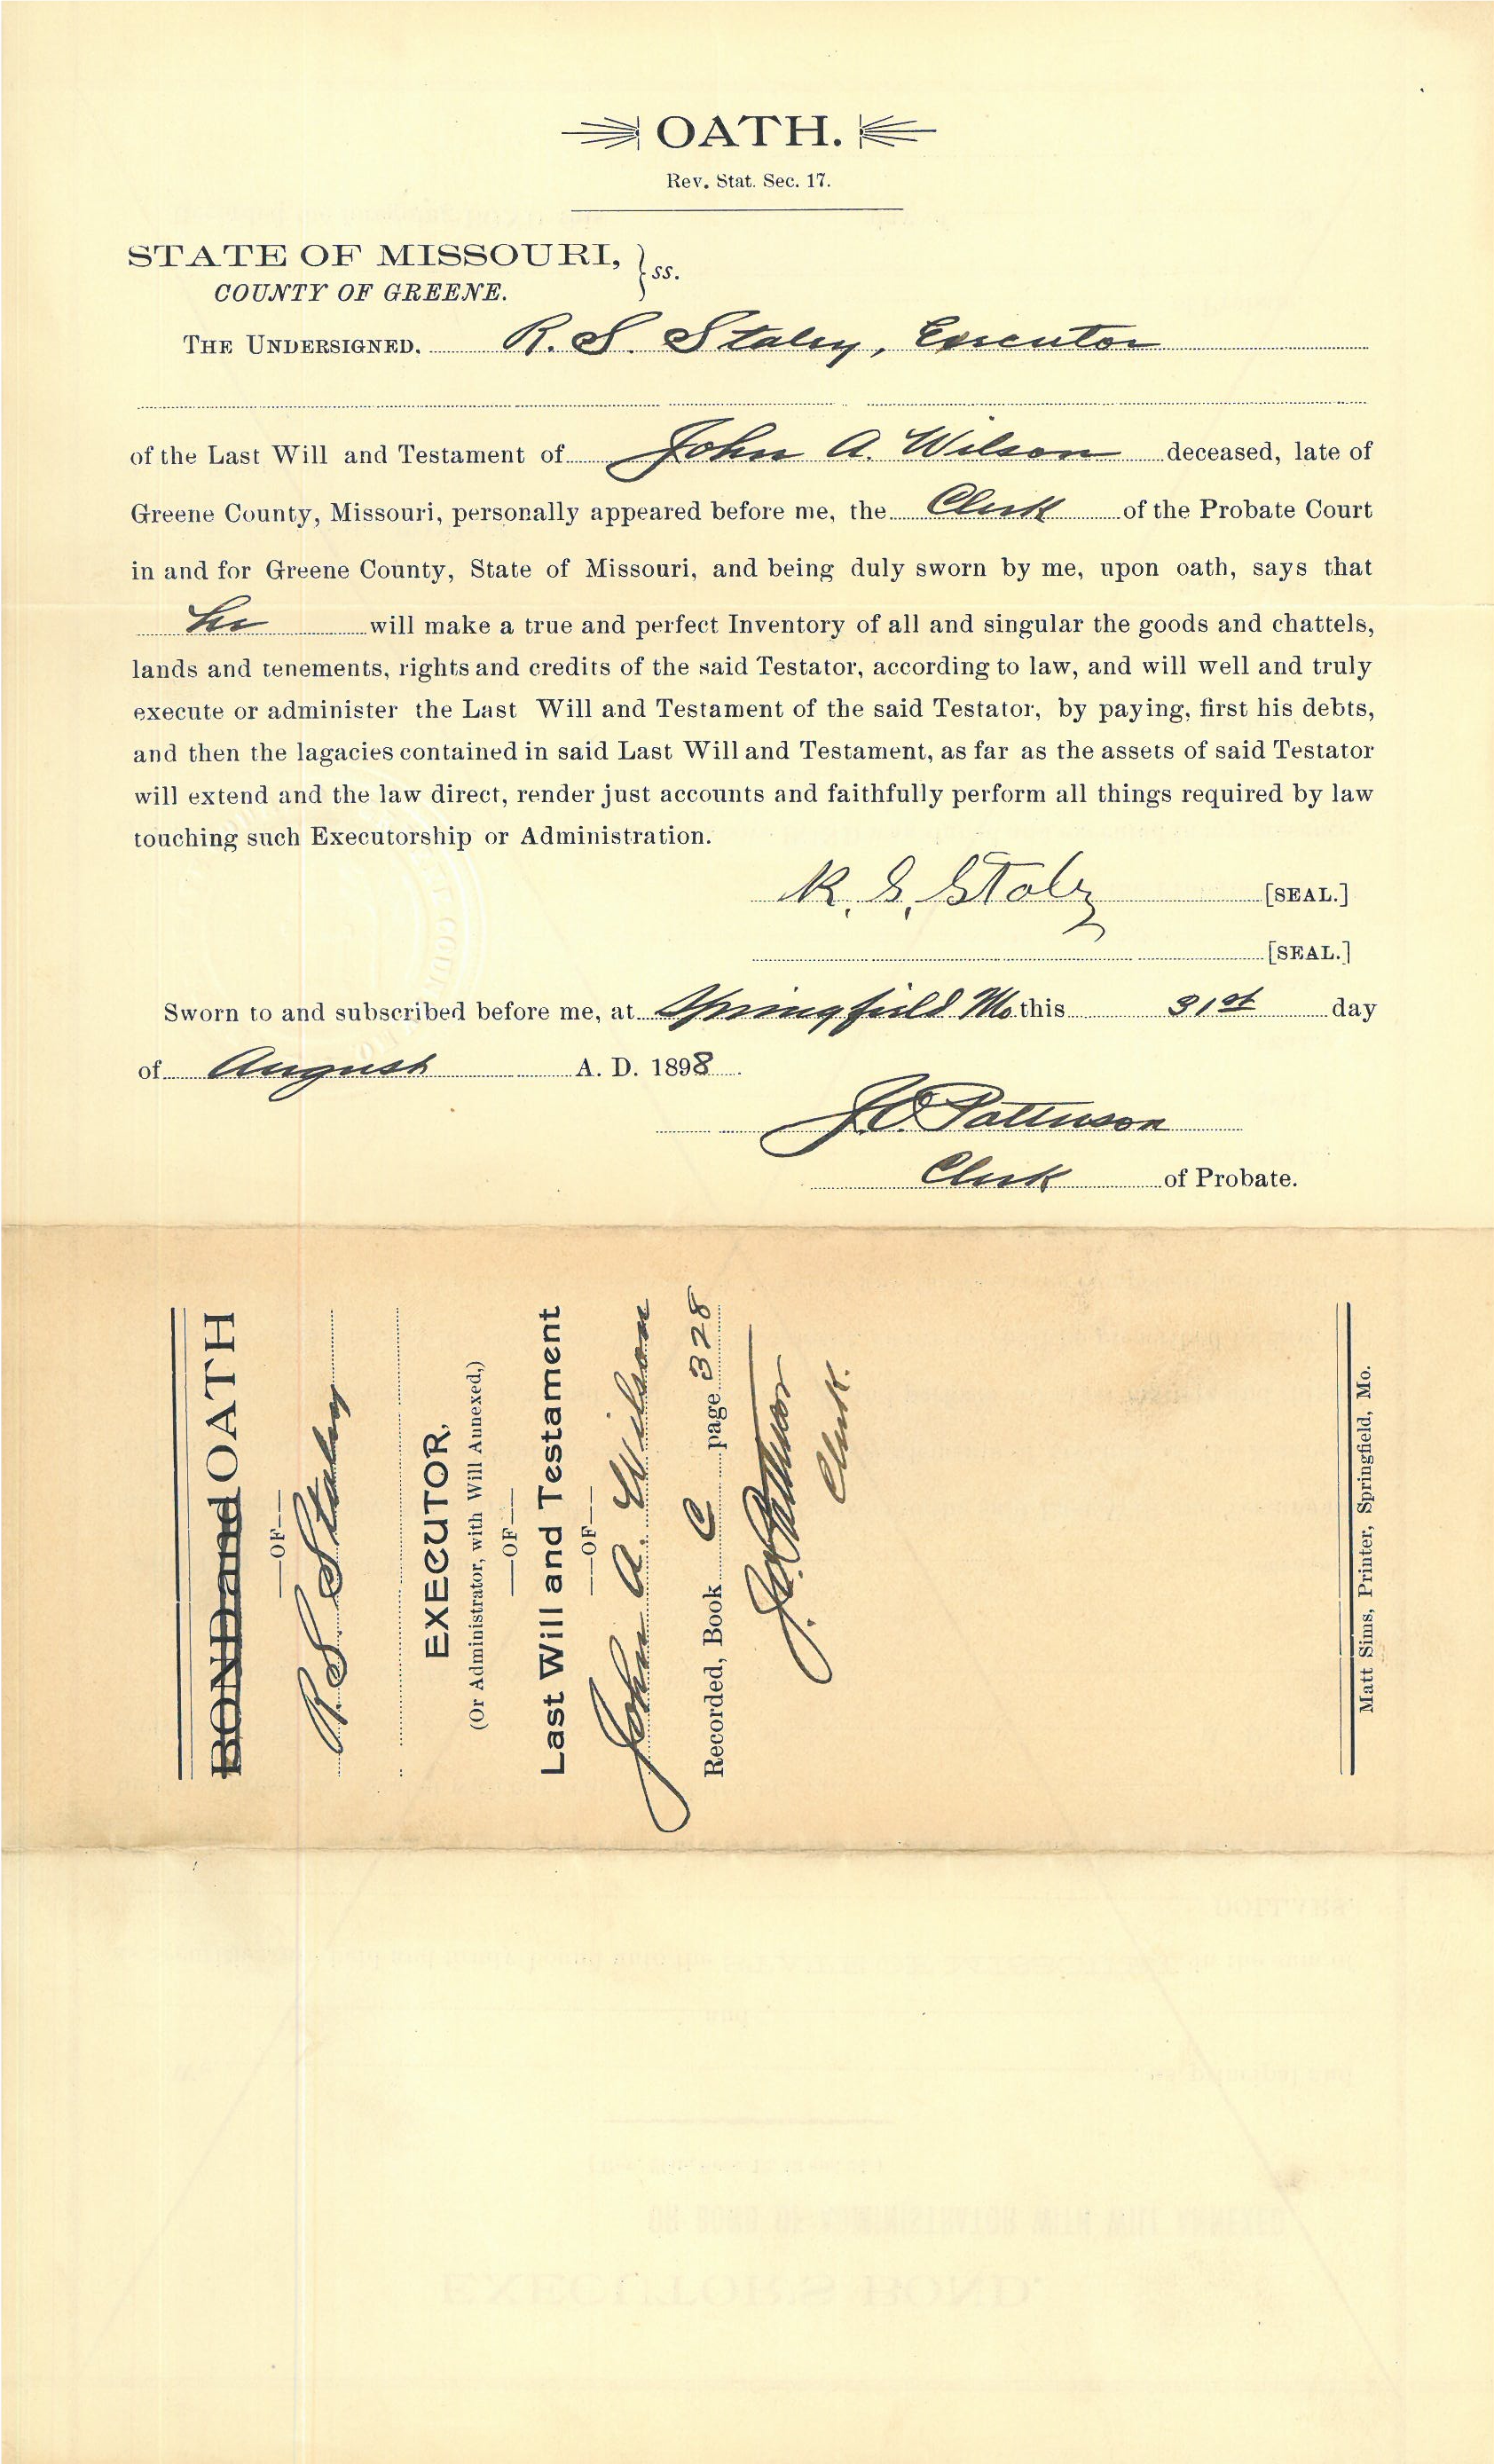 OATH.
Rev. Stat. Sec. 17.
STATE OF MISSOURI, } ss.
COUNTY OF GREENE.
THE UNDERSIGNED. R. S. Staley, Executor
of the Last Will and Testament of John A. Wilson deceased, late of
Greene County, Missouri, personally appeared before me, the Clerk of the Probate Court
in and for Greene County, State of Missouri, and being duly sworn by me, upon oath, says that
he will make a true and perfect Inventory of all and singular the goods and chattels,
lands and tenements, rights and credits of the said Testator, according to law, and will well and truly
execute or administer the Last Will and Testament of the said Testator, by paying, first his debts,
and then the lagacies contained in said Last Will and Testament, as far as the assets of said Testator
will extend and the law direct, render just accounts and faithfully perform all things required by law
touching such Executorship or Administration.
R. S. Staley [SEAL.]
[SEAL.]
Sworn to and subscribed before me, at Springfield Mo this 31st day
of August A. D. 1898.
J. C. Patterson
Clerk of Probate.
BOND and OATH
—OF—
R. S. Staley
EXECUTOR,
(Or Administrator, with Will Annexed,)
—OF—
Last Will and Testament
—OF—
John A. Wilson
Recorded, Book C page 328
J. C. Patterson
Clerk.
Matt Sims, Printer, Springfield, Mo.
EXECUTOR'S BOND.